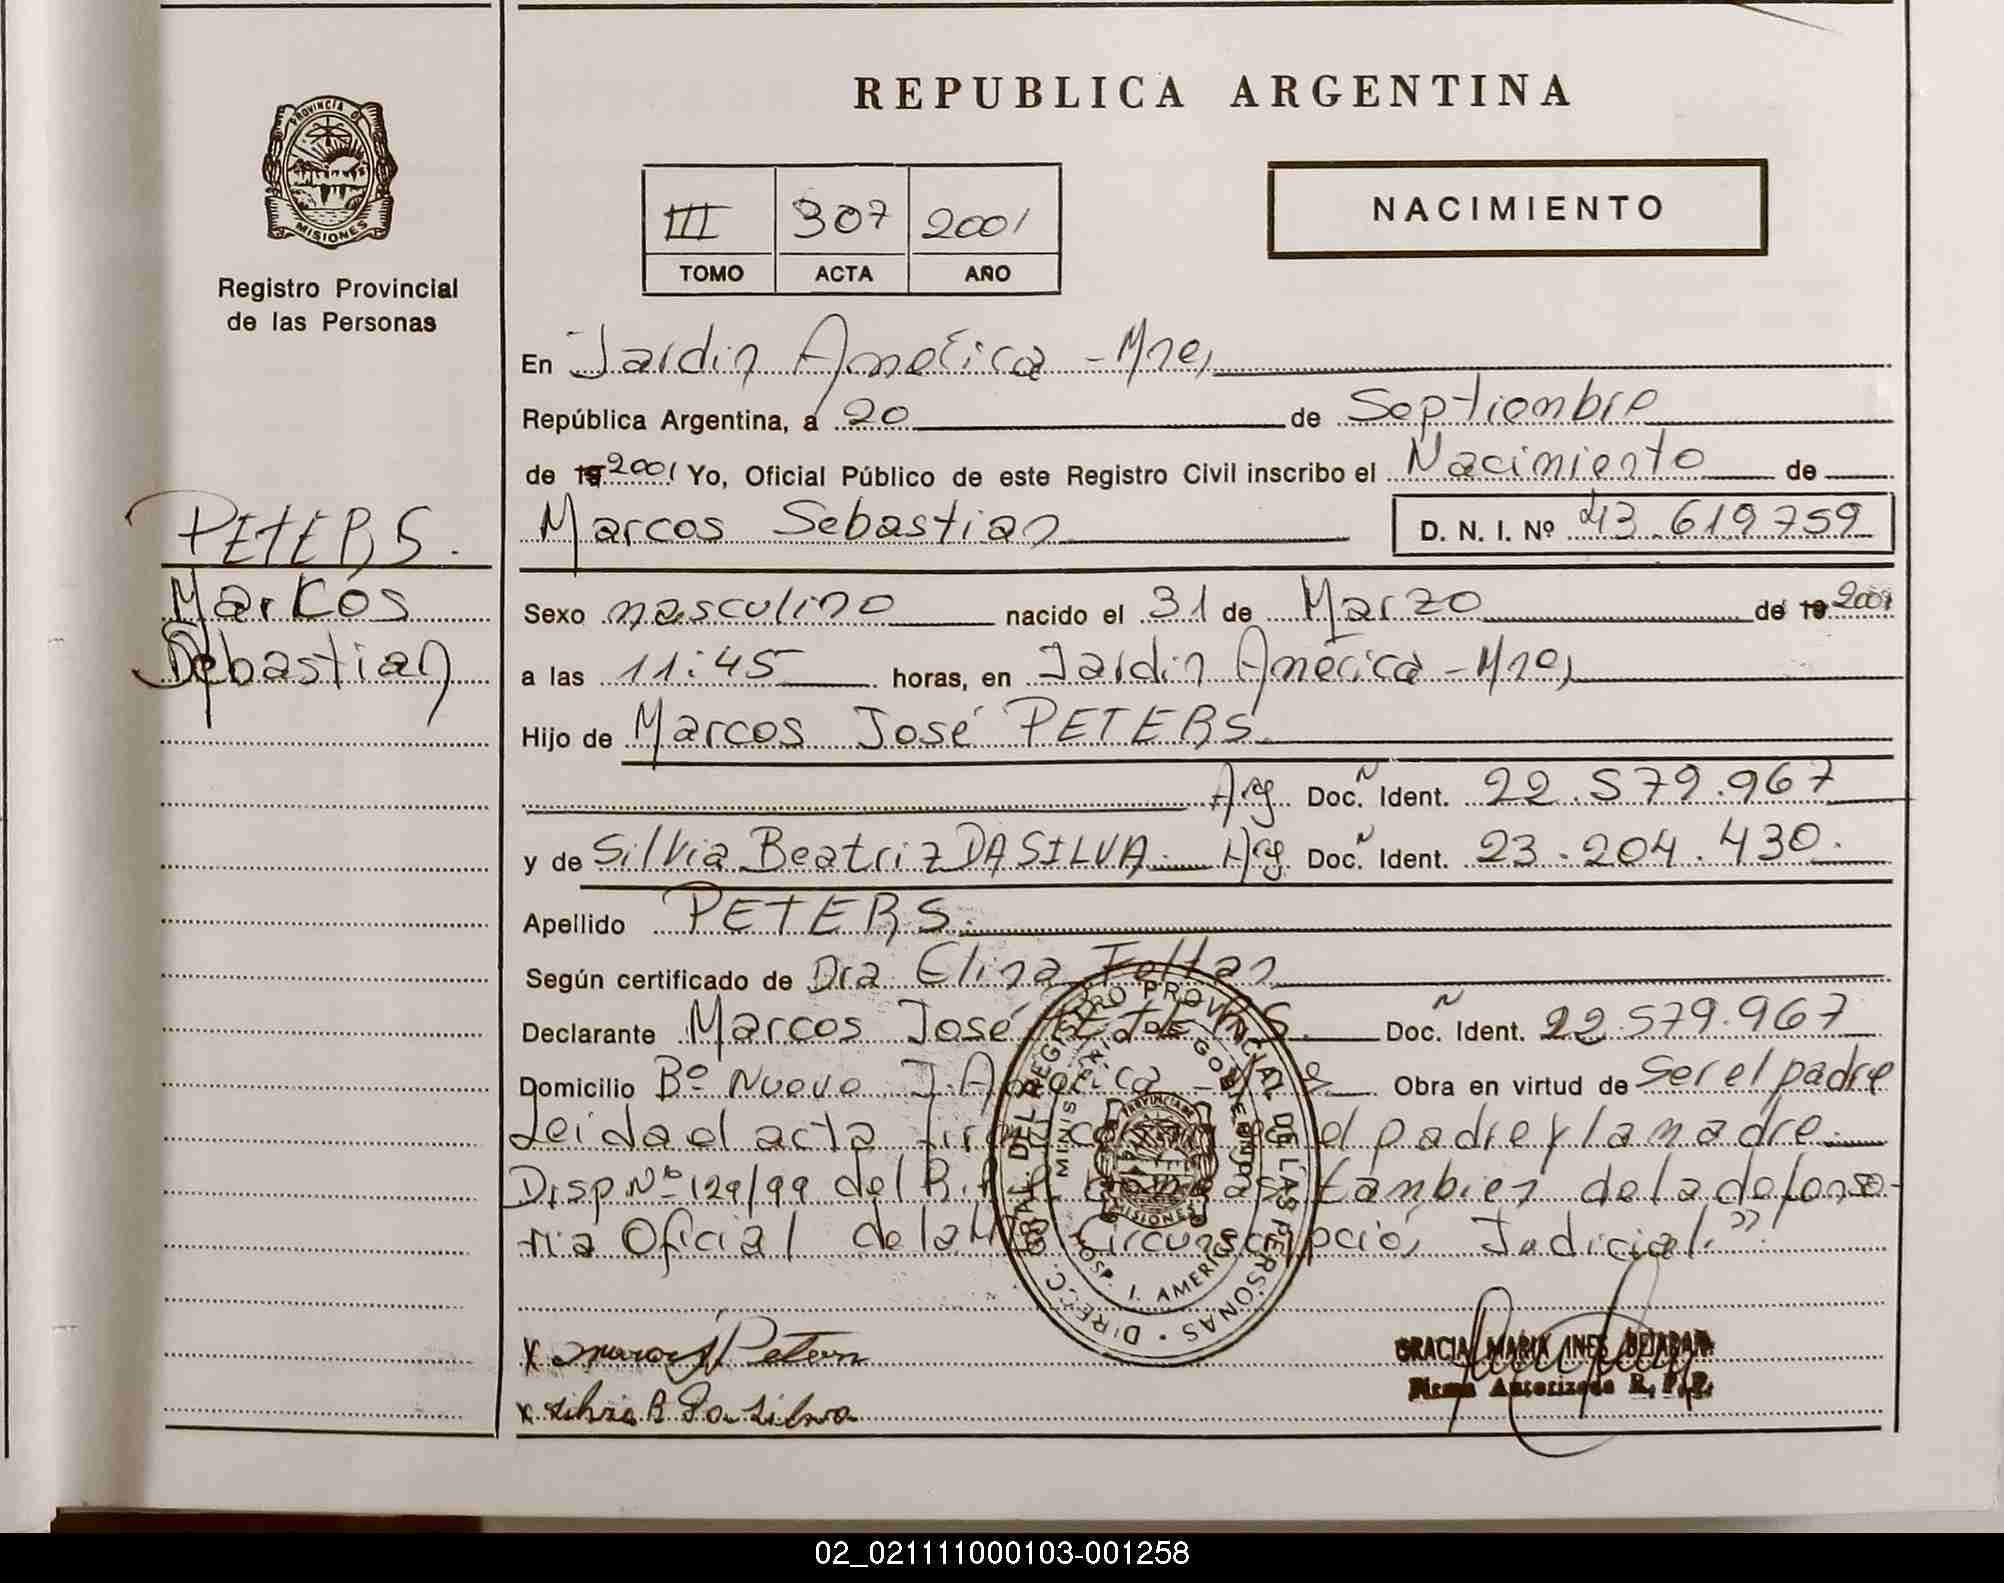 REPUBLICA ARGENTINA
PROVINCIA DE
MISIONES
Registro Provincial
de las Personas
III 307 2001
TOMO ACTA AÑO
NACIMIENTO
En Jardin América - Mnes,
República Argentina, a 20 de Septiembre
de 19 2001 Yo, Oficial Público de este Registro Civil inscribo el Nacimiento de
Marcos Sebastian D. N. I. Nº 43.619759
PETERS.
Markos
Sebastian
Sexo masculino nacido el 31 de Marzo de 19 2001
a las 11:45 horas, en Jardin América - Mnes,
Hijo de Marcos José PETERS
Arg Doc. Ident. 22.579.967
y de Silvia Beatriz DA SILVA. Arg. Doc. Ident. 23.204.430.
Apellido PETERS.
Según certificado de Dra Elina
Declarante Marcos José PETERS. Doc. Ident. 22.579.967
Domicilio Bº Nuevo J. América Obra en virtud de Ser el padre
Leida el acta el padre y la madre.
Disp Nº 129/99 del R. tambien de la defenso-
ria Oficial de la Circunscripción Judicial."
DIREC. GRAL. DEL REGISTRO PROVINCIAL DE LAS PERSONAS
MINISTERIO DE GOBIERNO
HOSP. J. AMERICA
PROVINCIA DE
MISIONES
x Marcos J Peters
x Silvia B Da Silva
GRACIA MARIA INES
Firma Autorizada R. P. P.
02_021111000103-001258